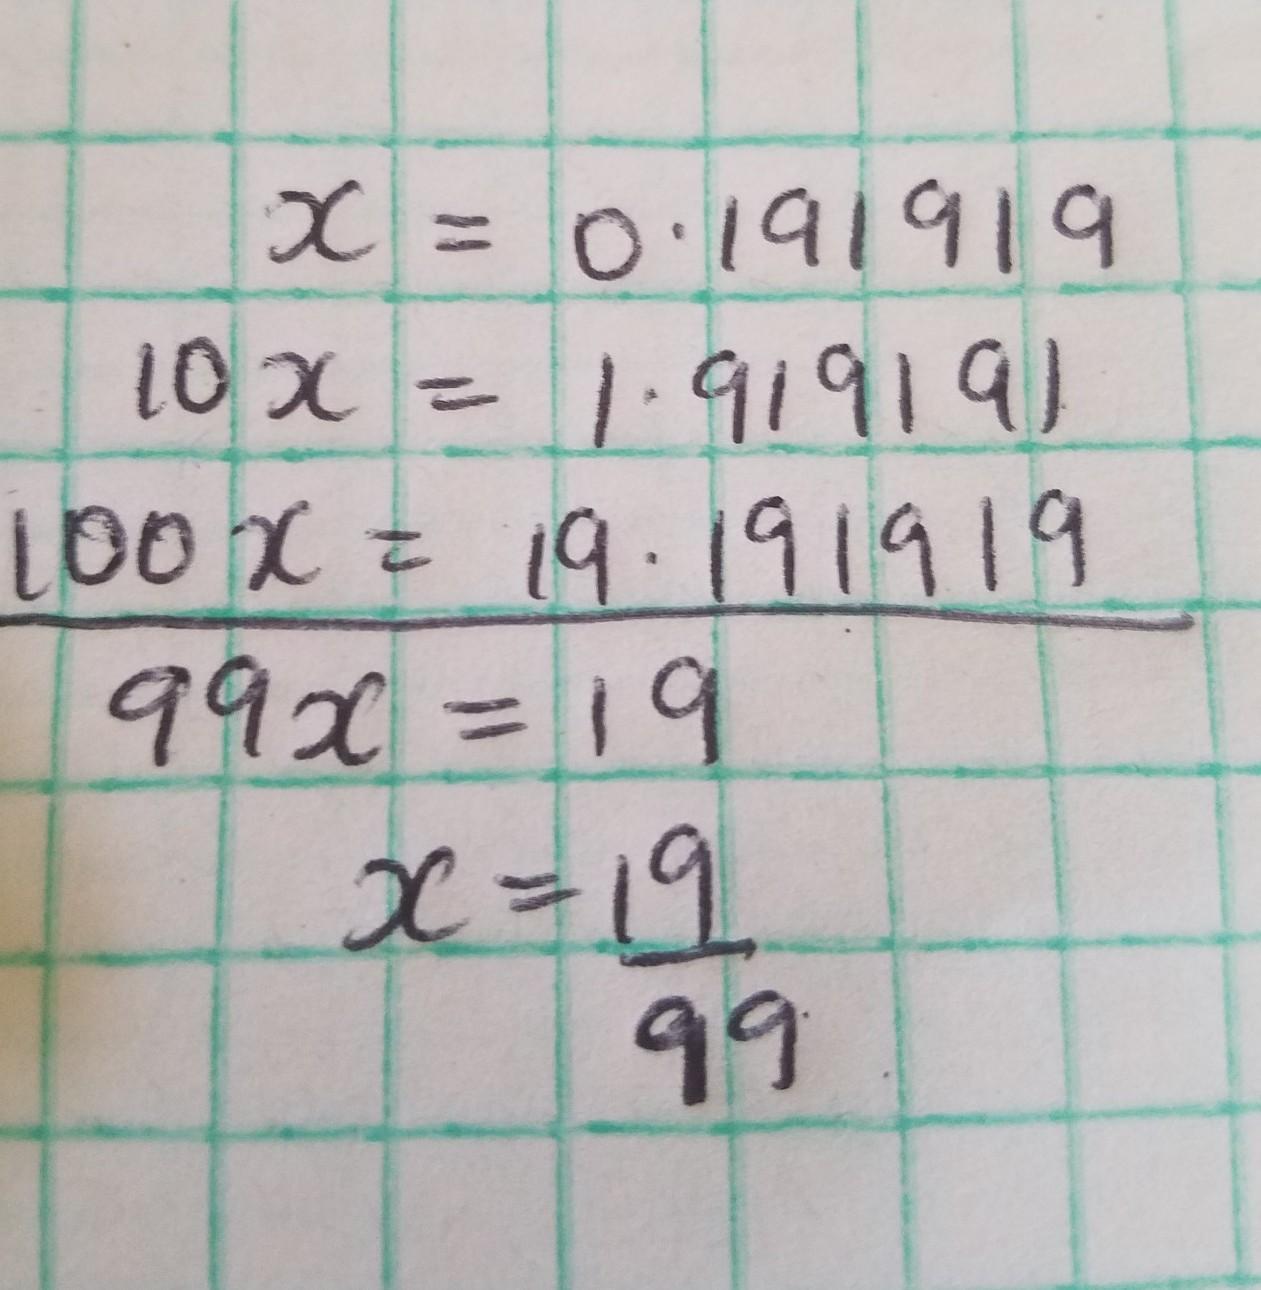 x = 0.191919
10x = 1.919191
100x = 19.191919
99x = 19
x = 19
99